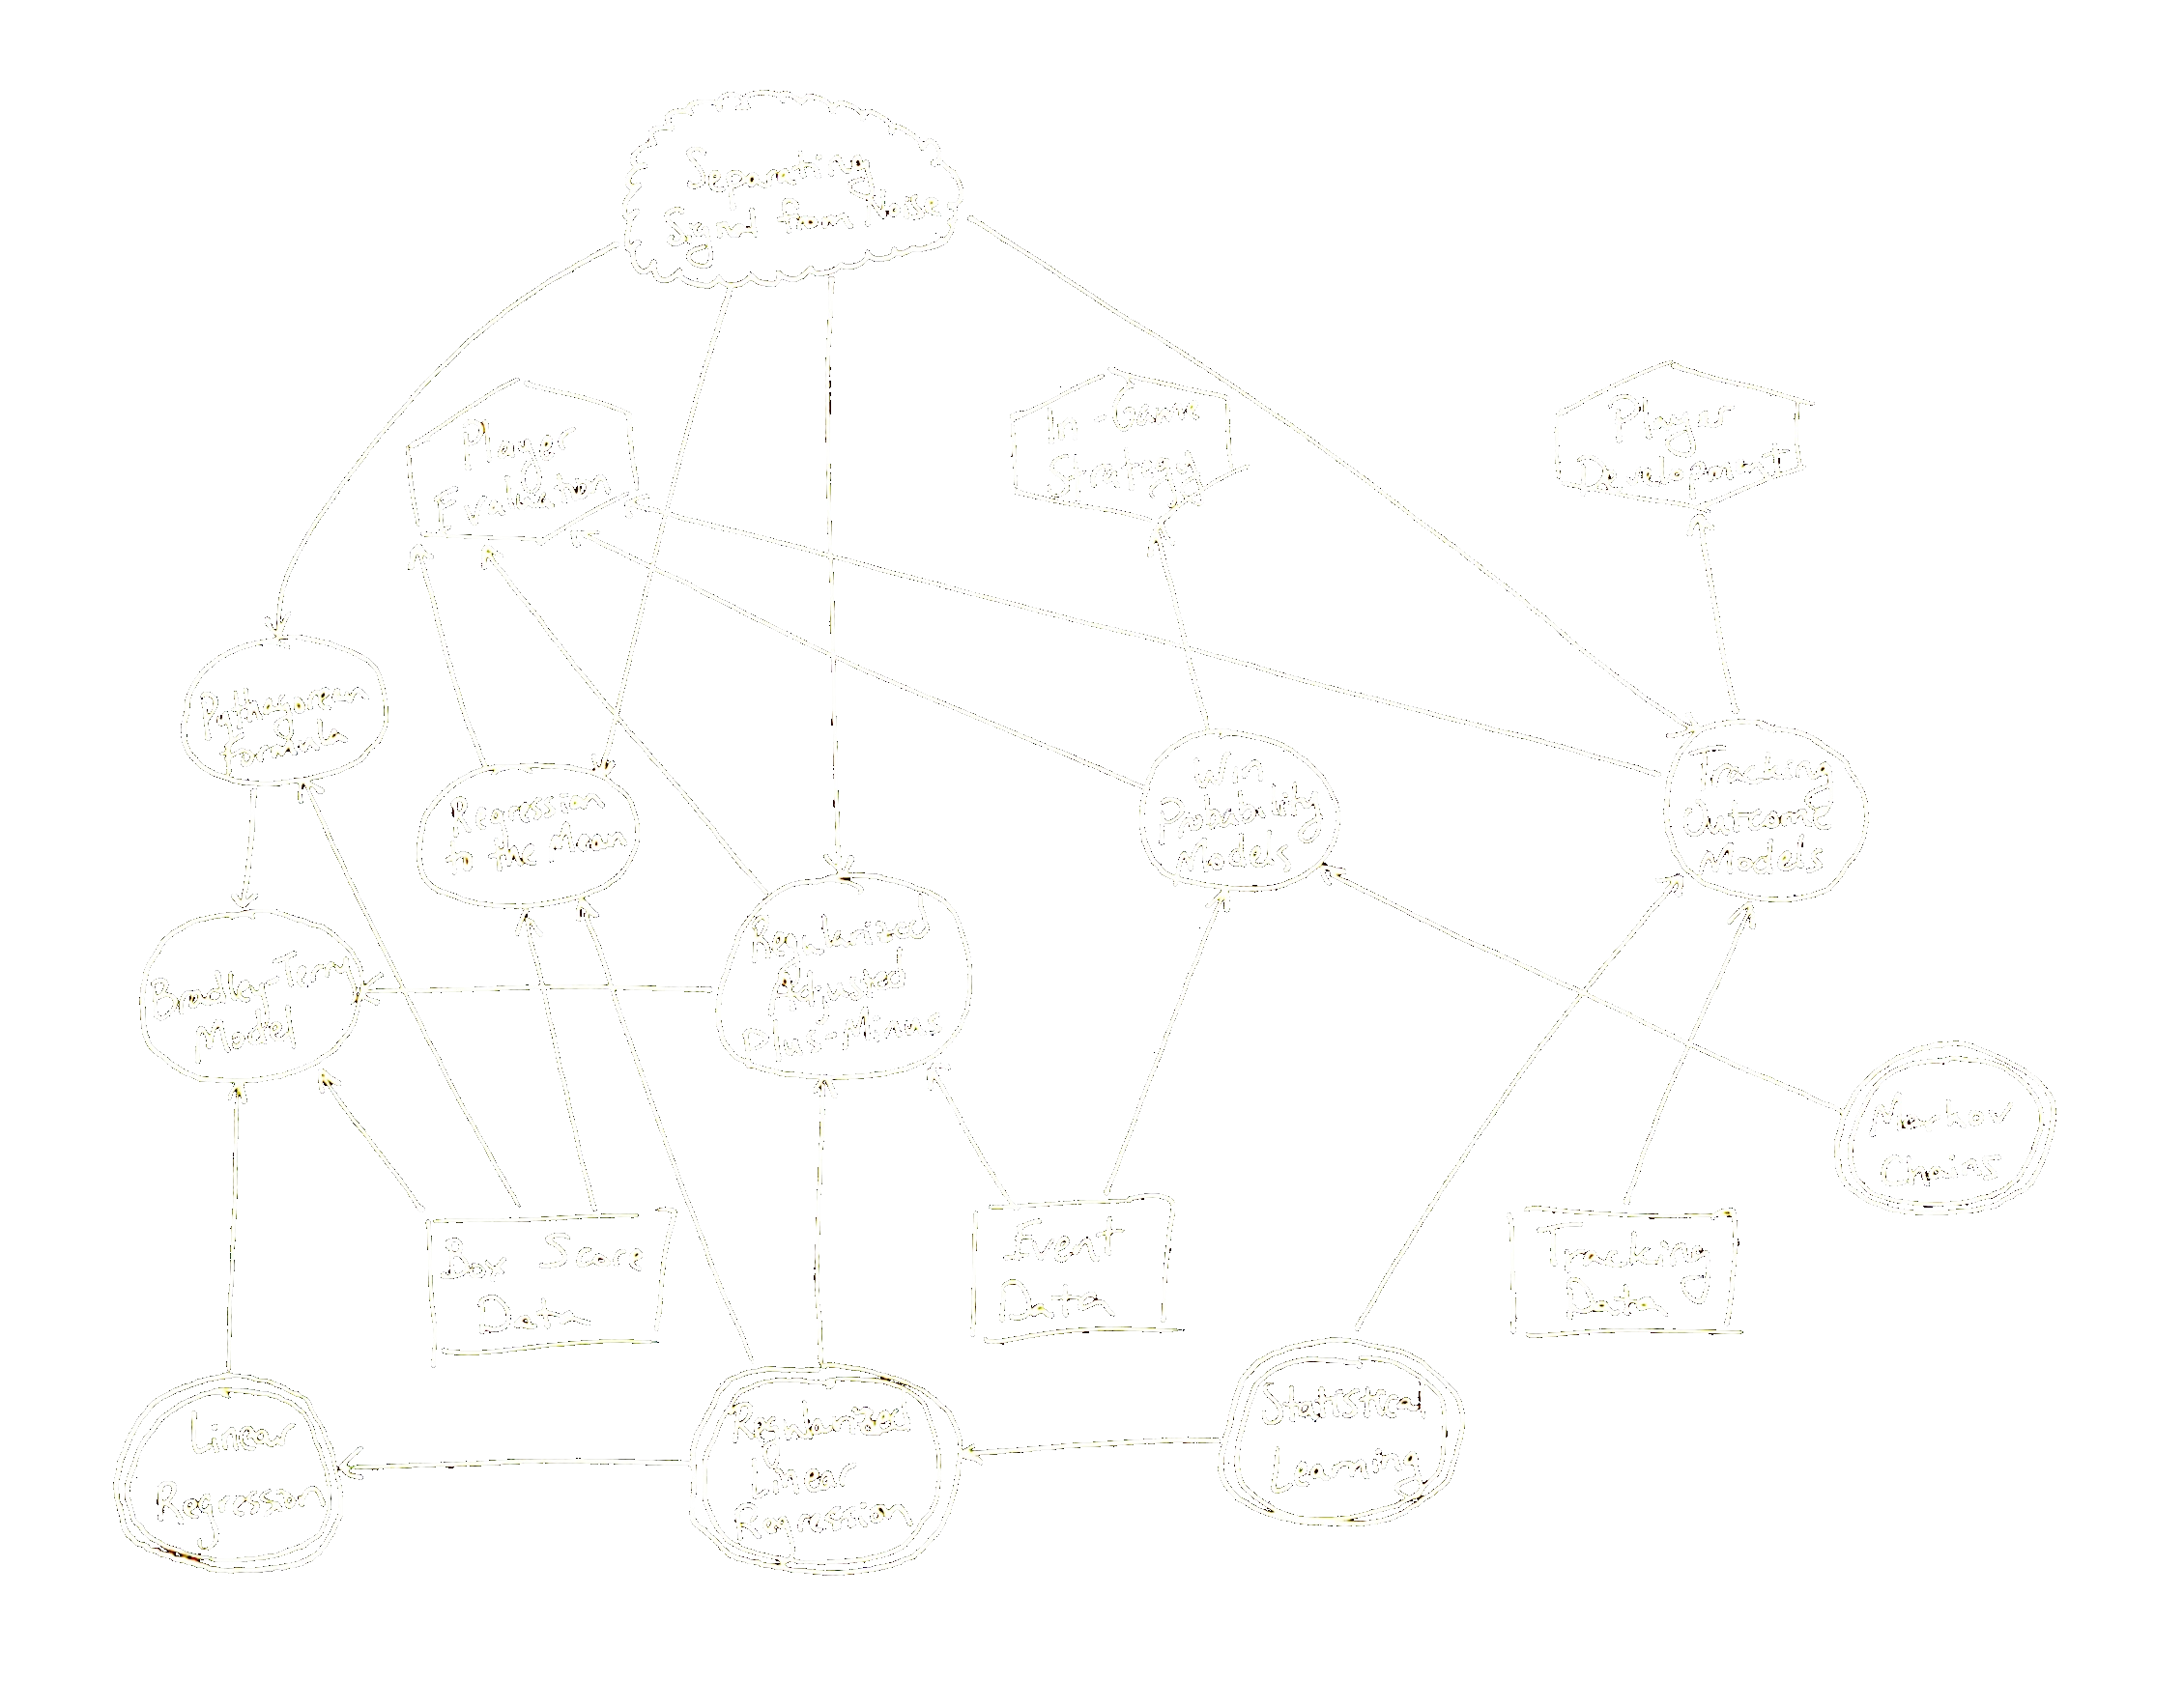 Separating
Signal from Noise
Player
Evaluation
In-Game
Strategy
Player
Development
Pythagorean
Formula
Regression
to the Mean
Win
Probability
Models
Tracking
Outcome
Models
Bradley-Terry
Model
Regularized
Adjusted
Plus-Minus
Markov
Chains
Box Score
Data
Event
Data
Tracking
Data
Linear
Regression
Regularized
Linear
Regression
Statistical
Learning